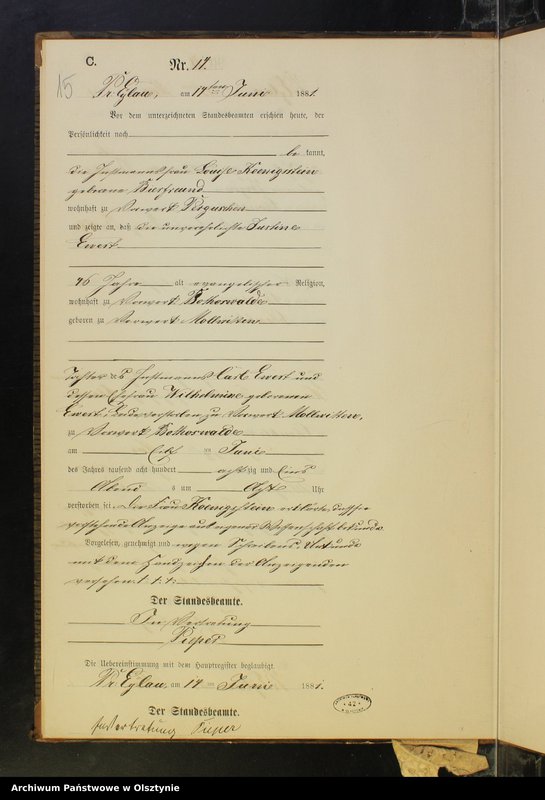 C.
Nr. 14.
15
Pr. Eylau, am 14ten Juni 1881.
Vor dem unterzeichneten Standesbeamten erschien heute, der
Persönlichkeit nach
be kannt,
die Instmannsfrau Louise Koenigstein
geborene
wohnhaft zu Vorwerk
und zeigte an, daß die unverehelichte Justine
Ewert
46 Jahre alt evangelischer Religion,
wohnhaft zu Vorwerk Bothorwalde
geboren zu Vorwerk Mollwitten
Tochter des Instmanns Carl Ewert und
dessen Ehefrau Wilhelmine geborenen
Ewert, Beide verstorben zu Vorwerk Mollwitten,
zu Vorwerk Bothorwalde
am Juni
des Jahres tausend acht hundert achtzig und Eins
Abend s um Acht Uhr
verstorben sei. Die Frau Koenigstein erklärte, dass sie
vorstehende Anzeige aus eigener Wissenschaft bekunde
Vorgelesen, genehmigt und wegen Schreibens Unkunde
mit dem Handzeichen der Anzeigenden
versehen: † † †:
Der Standesbeamte.
In Vertretung
Pieper
Die Uebereinstimmung mit dem Hauptregister beglaubigt.
Pr. Eylau, am 14 ten Juni 1881.
Der Standesbeamte.
In Vertretung Pieper
42
Archiwum Państwowe w Olsztynie